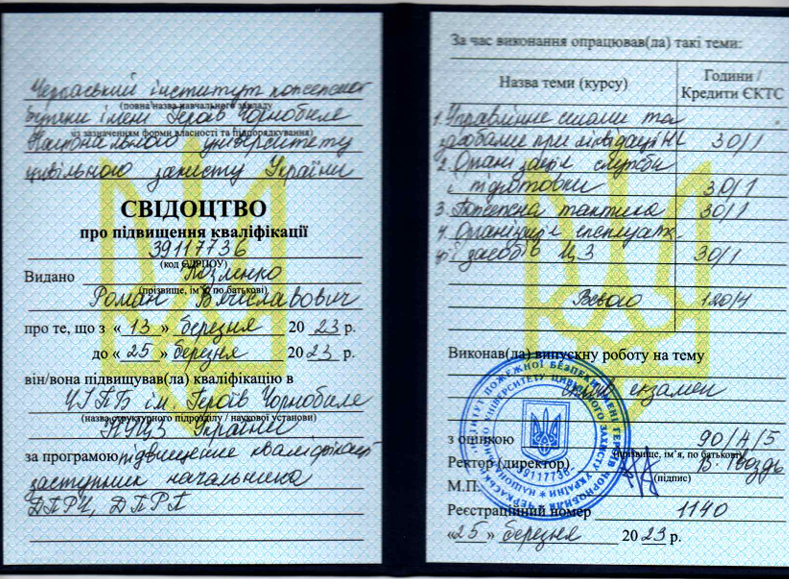 Черкаський інститут пожежної
(повна назва навчального закладу
безпеки імені Героїв Чорнобиля
із зазначенням форми власності та підпорядкування)
Національного університету
цивільного захисту України
СВІДОЦТВО
про підвищення кваліфікації
39117736
(код ЄДРПОУ)
Видано
(прізвище, ім'я, по батькові)
Роман Вячеславович
про те, що з « 13 » березня 20 23 р.
до « 25 » березня 20 23 р.
він/вона підвищував(ла) кваліфікацію в
ЧІПБ ім. Героїв Чорнобиля
(назва структурного підрозділу / наукової установи)
НУЦЗ України
за програмою підвищення кваліфікації
заступник начальника
ДПРЧ, ДПРП
За час виконання опрацював(ла) такі теми:
Назва теми (курсу)
Години /
Кредити ЄКТС
1. Управління силами та
засобами при ліквідації НС 30/1
2. Організація служби
і підготовки 30/1
3. Пожежна тактика 30/1
4. Організація експлуат.
і засобів ЦЗ 30/1
Всього 120/4
Виконав(ла) випускну роботу на тему
екзамен
з оцінкою 90/А/5
(прізвище, ім'я, по батькові)
Ректор (директор) В. Гвоздь
(підпис)
М.П.
Реєстраційний номер 1140
«25» березня 20 23 р.